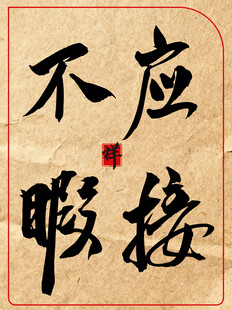 应接
不暇
祥